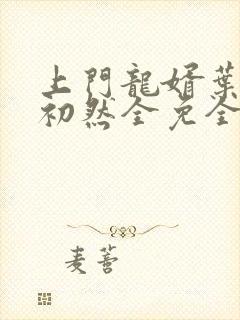 上門龍婿葉
初然全免全
麦蔷